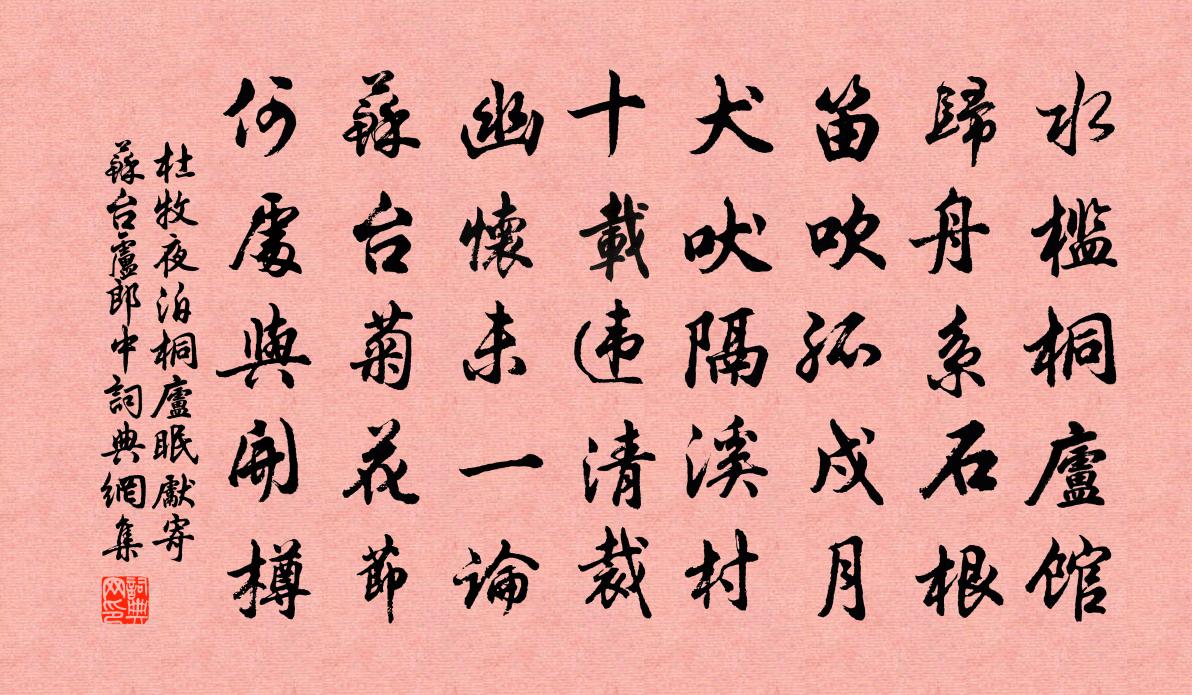 水檻桐廬館
歸舟系石根
笛吹孤戍月
犬吠隔溪村
十載违清裁
幽懷未一論
蘇台菊花節
何處與開樽
杜牧夜泊桐廬眠獻寄
蘇台盧郎中詞典網集
詞典
网印